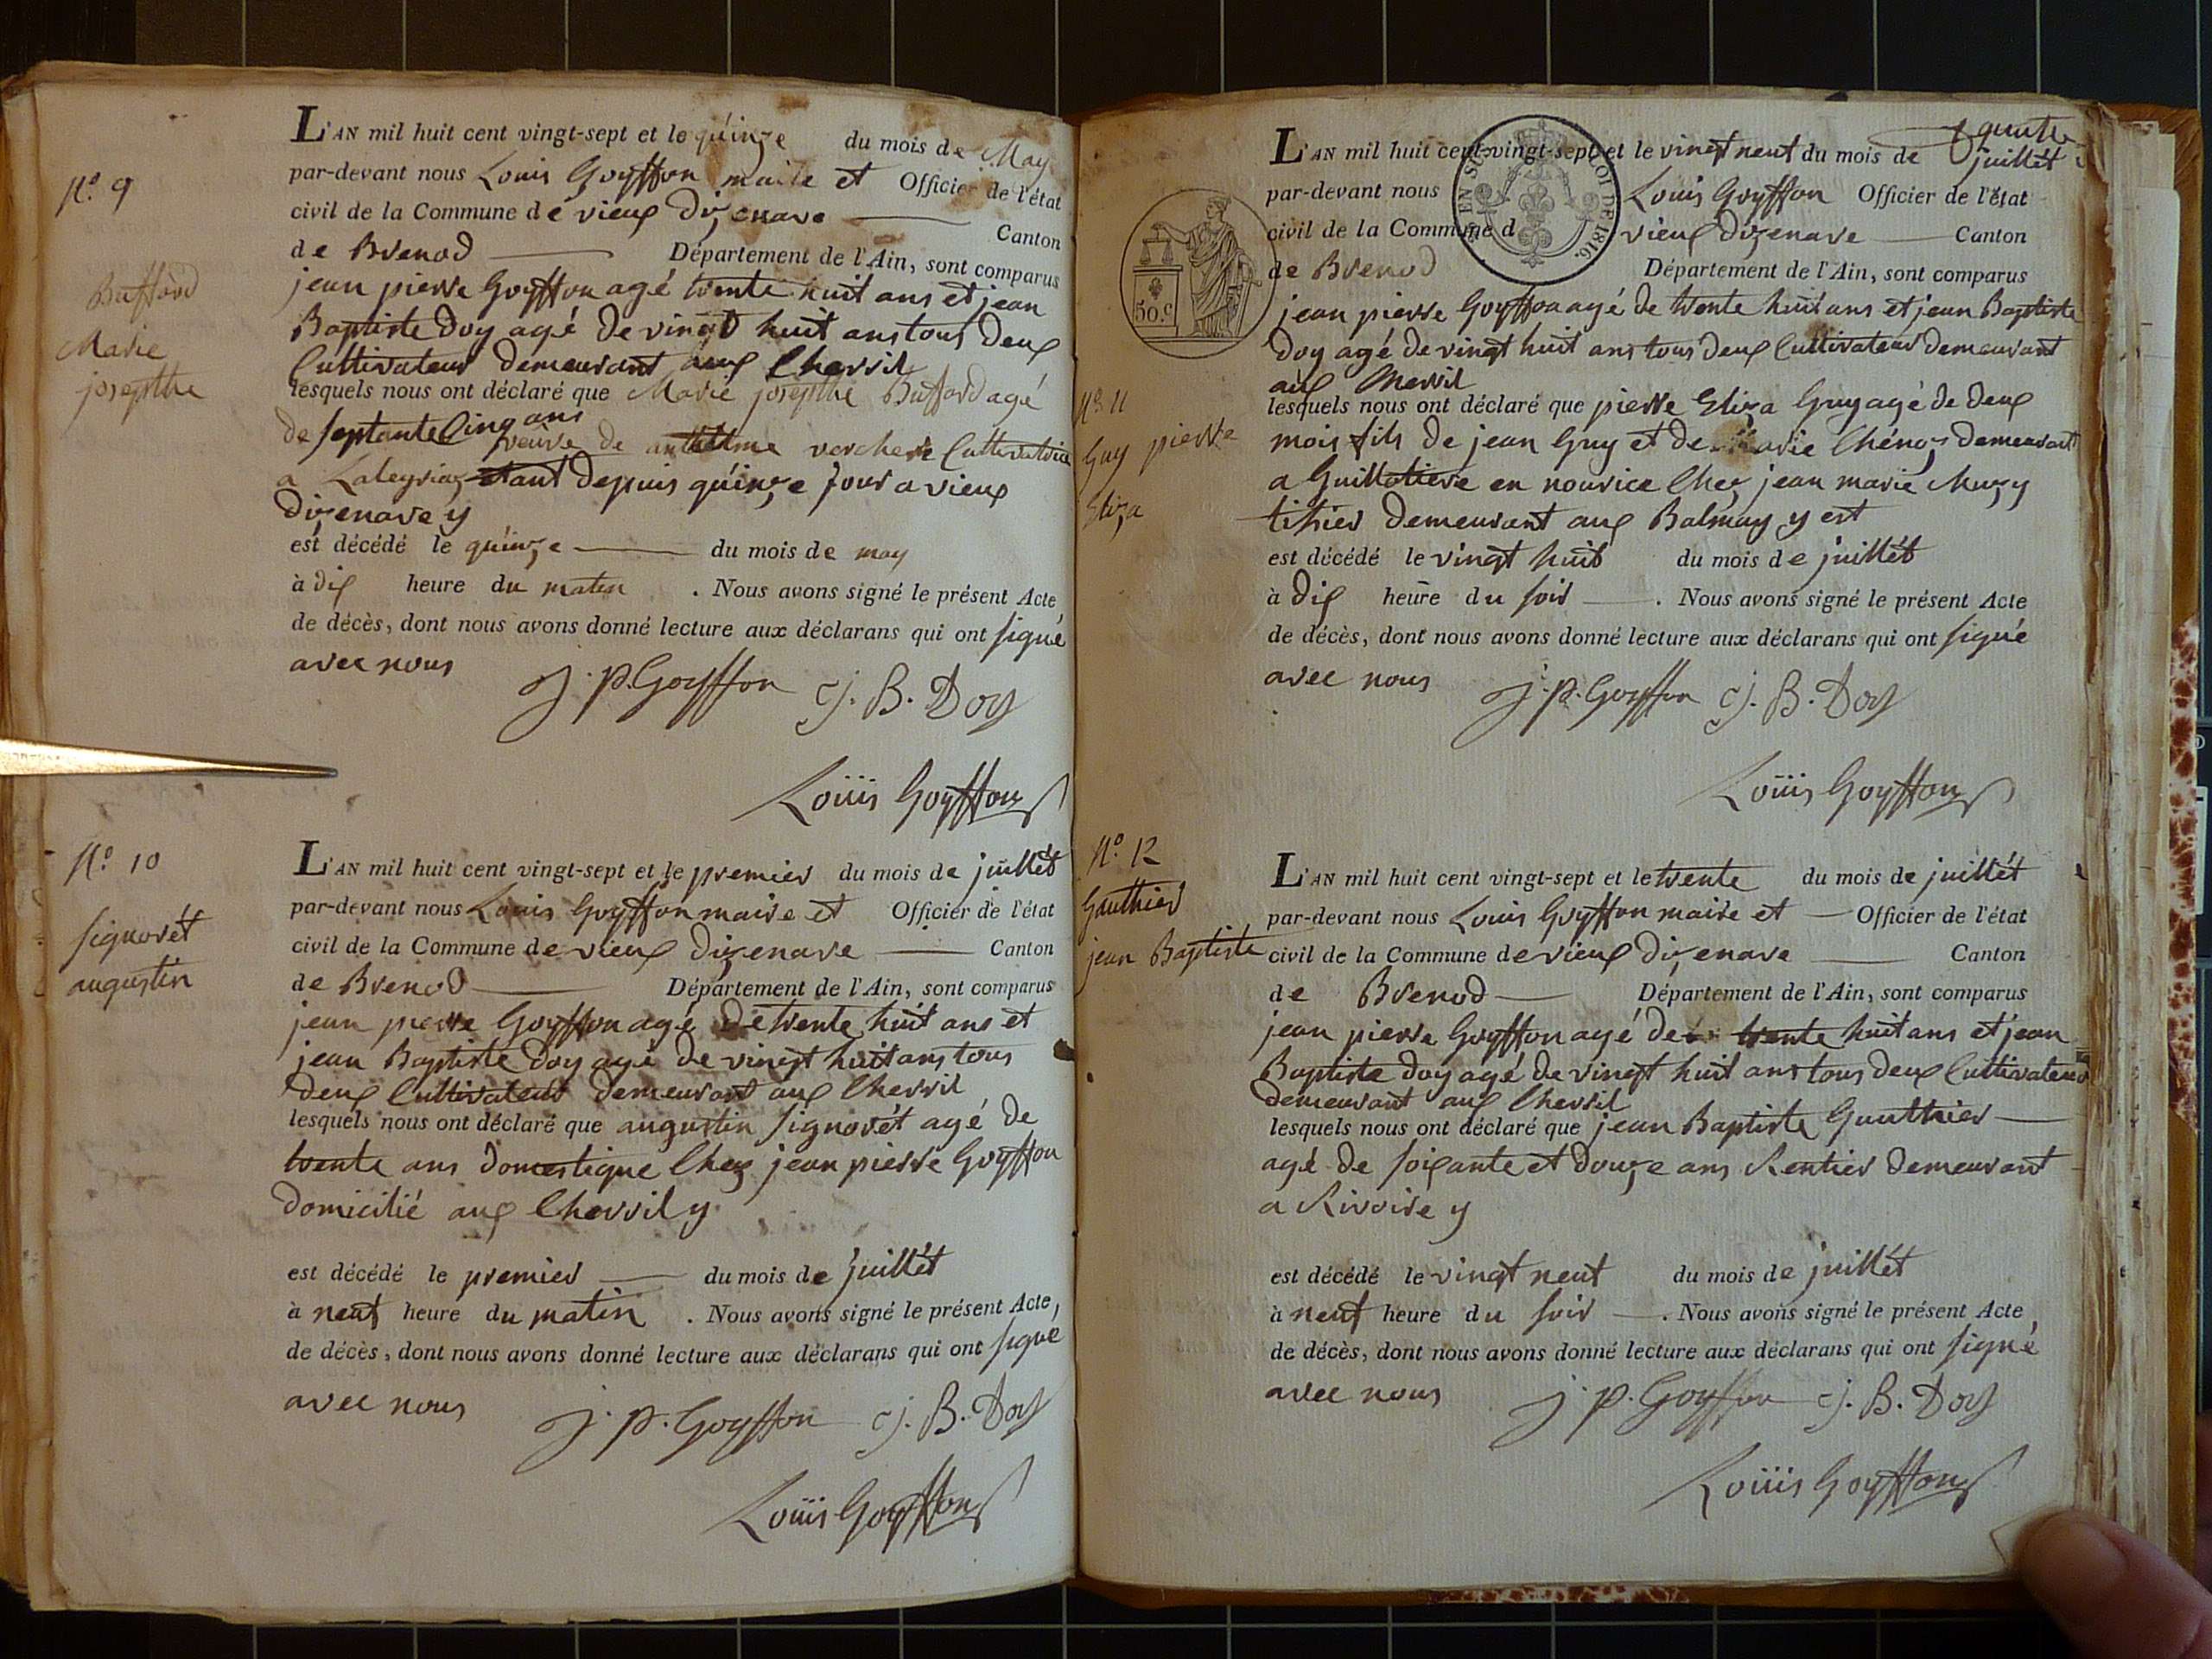 N.o 9
Buffard
Marie
josepthe
L'AN mil huit cent vingt-sept et le quinze du mois de May
par-devant nous Louis Goyffon maire et Officier de l'état
civil de la Commune de vieux dizenave Canton
de Brenod Département de l'Ain, sont comparus
jean pierre Goyffon agé trente huit ans et jean
Baptiste Doy agé de vingt huit ans tous deux
Cultivateur demeurant aux Chevril
lesquels nous ont déclaré que Marie josepthe Buffard agé
de septante Cinq ans
veuve de anthelme verchere Cultivatrice
a Laleyriaz etant depuis quinze jour a vieux
dizenave y
est décédé le quinze du mois de may
à dix heure du matin . Nous avons signé le présent Acte
de décès, dont nous avons donné lecture aux déclarans qui ont signé
avec nous
J. P. Goyffon J. B. Doy
Louis Goyffon
N.o 10
signorét
augustin
L'AN mil huit cent vingt-sept et le premier du mois de juillét
par-devant nous Louis Goyffon maire et Officier de l'état
civil de la Commune de vieux dizenave Canton
de Brenod Département de l'Ain, sont comparus
jean pierre Goyffon agé de trente huit ans et
jean Baptiste Doy agé de vingt huit ans tous
deux Cultivateur demeurant aux Chevril
lesquels nous ont déclaré que augustin signorét agé de
trente ans domestique Chez jean pierre Goyffon
domicilié aux Chevril y
est décédé le premier du mois de juillét
à neuf heure du matin . Nous avons signé le présent Acte,
de décès, dont nous avons donné lecture aux déclarans qui ont signé
avec nous
J. P. Goyffon J. B. Doy
Louis Goyffon
L'AN mil huit cent vingt-sept et le vingt neuf du mois de juillét
par-devant nous Louis Goyffon Officier de l'état
civil de la Commune d vieux dizenave Canton
de Brenod Département de l'Ain, sont comparus
50.c
LOI DE 1816.
jean pierre Goyffon agé de trente huit ans et jean Baptiste
Doy agé de vingt huit ans tous deux Cultivateur demeurant
aux Chevril
N.o 11
Guy pierre
Eliza
lesquels nous ont déclaré que pierre Eliza Guy agé de deux
mois fils de jean Guy et de Marie Chénoz demeurant
a Guillotiere en nourice Chez jean marie Muzy
tisier demeurant aux Balmay y est
est décédé le vingt huit du mois de juillét
à dix heure du soir . Nous avons signé le présent Acte
de décès, dont nous avons donné lecture aux déclarans qui ont signé
avec nous
J. P. Goyffon J. B. Doy
Louis Goyffon
N.o 12
Gauthier
jean Baptiste
L'AN mil huit cent vingt-sept et le trente du mois de juillét
par-devant nous Louis Goyffon maire et Officier de l'état
civil de la Commune de vieux dizenave Canton
de Brenod Département de l'Ain, sont comparus
jean pierre Goyffon agé de trente huit ans et jean
Baptiste Doy agé de vingt huit ans tous deux Cultivateur
demeurant aux Chevril
lesquels nous ont déclaré que jean Baptiste Gauthier
agé de soixante et douze ans Rentier demeurant
a Rivoire y
est décédé le vingt neuf du mois de juillét
à neuf heure du soir . Nous avons signé le présent Acte
de décès, dont nous avons donné lecture aux déclarans qui ont signé
avec nous
J. P. Goyffon J. B. Doy
Louis Goyffon